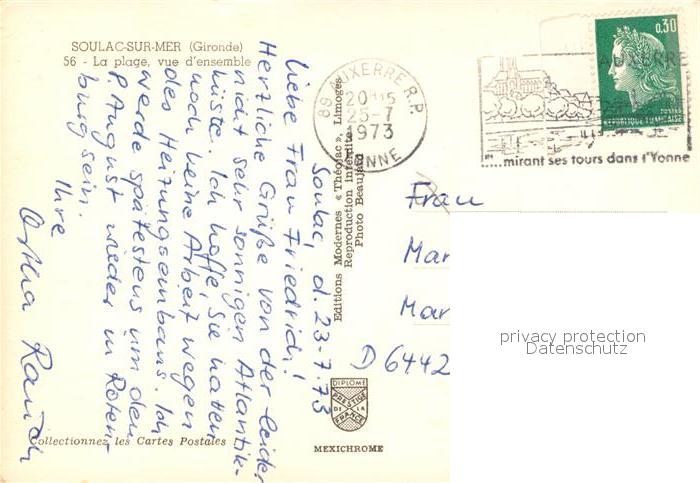 SOULAC-SUR-MER (Gironde)
56 - La plage, vue d'ensemble
Soulac, d. 23-7-73
Liebe Frau Friedrich!
Herzliche Grüße von der leider
nicht sehr sonnigen Atlantik-
küste. Ich hoffe, Sie hatten
noch keine Arbeit wegen
des Heizungseinbaus. Ich
werde spätestens um den
8. August wieder in Roten-
burg sein.
Ihre
Rauch
Editions Modernes « Théojac », Limoges
Reproduction interdite
Photo Beaujard
89 AUXERRE R.P.
20H15
25-7
1973
YONNE
0,30
POSTES
REPUBLIQUE FRANÇAISE
AUXERRE
....mirant ses tours dans l'Yonne
Frau
Mar
Mar
D 6442
privacy protection
Datenschutz
DIPLOME
PRESTIGE
DE LA
FRANCE
MEXICHROME
Collectionnez les Cartes Postales !